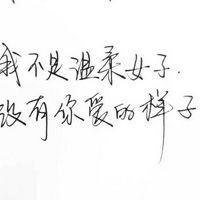 我不是温柔女子.
没有你爱的样子